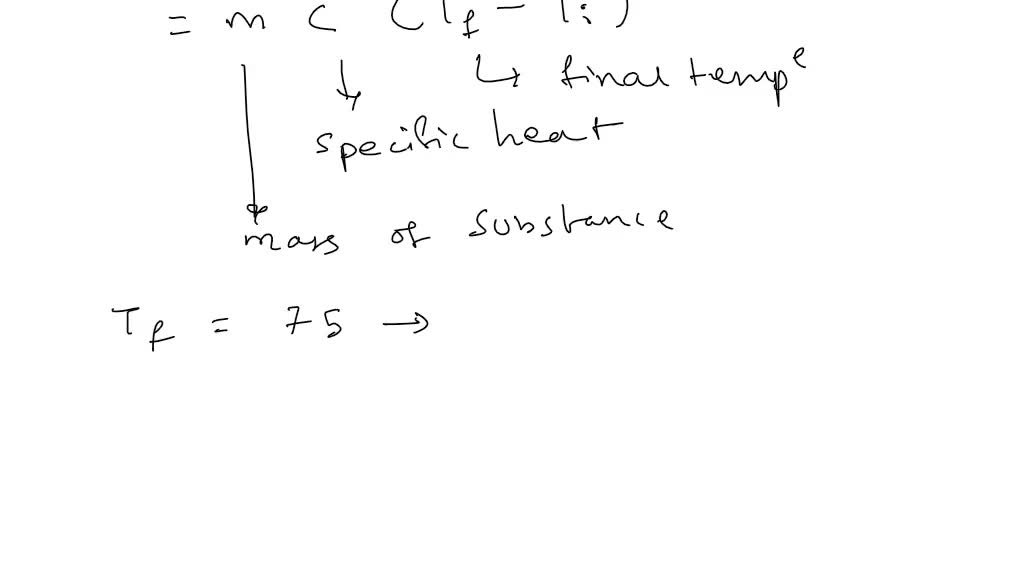 = m c (Tf - Ti)
↳ final tempe
specific heat
mass of substance
Tf = 75 →